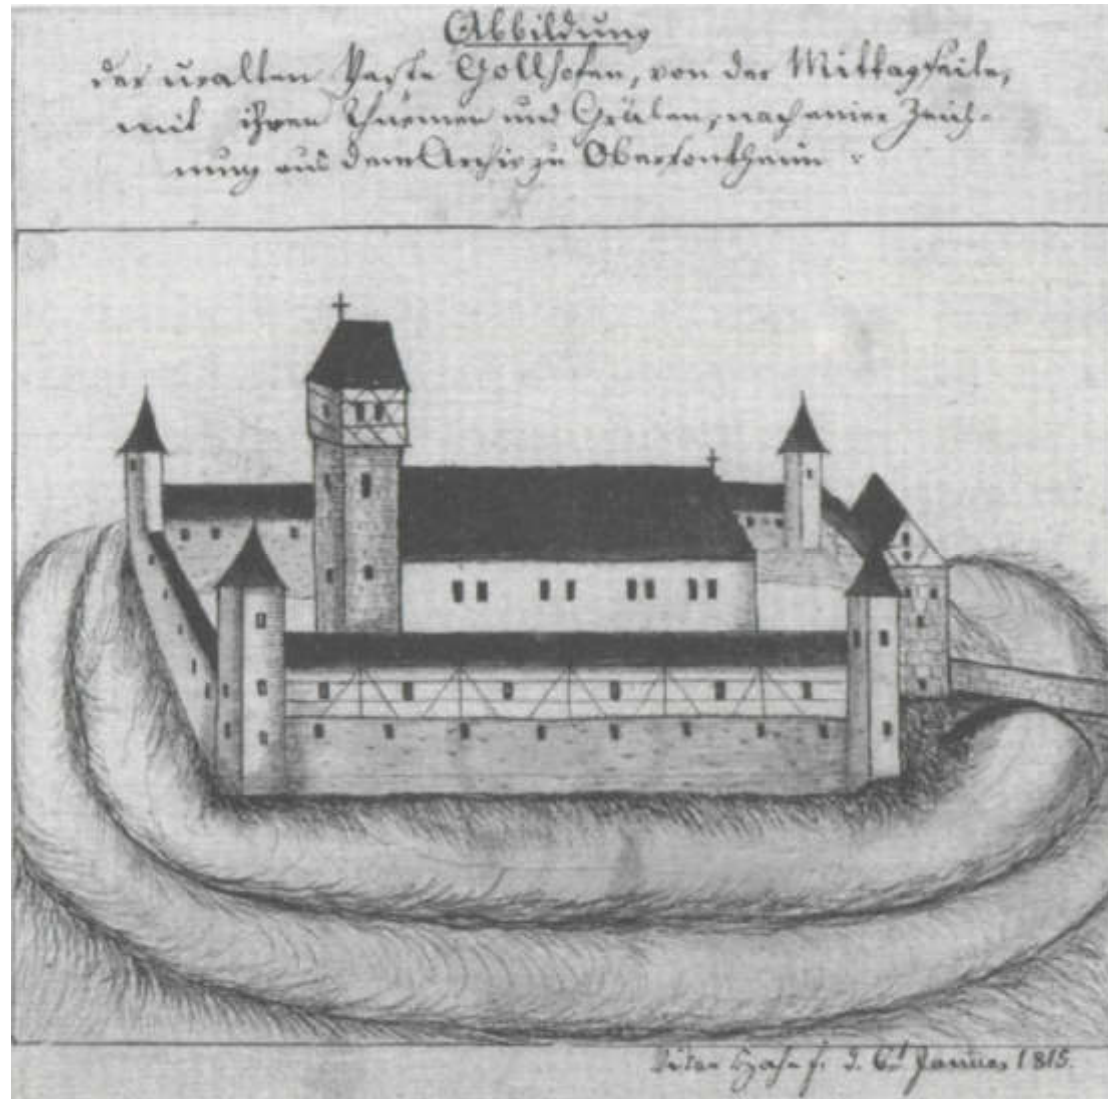 Abbildung
der uralten Veste Gollhofen, von der Mittagseite,
mit ihren Thürmen und Gräben, nach einer Zeich-
nung aus dem Archiv zu Obersontheim
f. d. 6t Januar 1815.